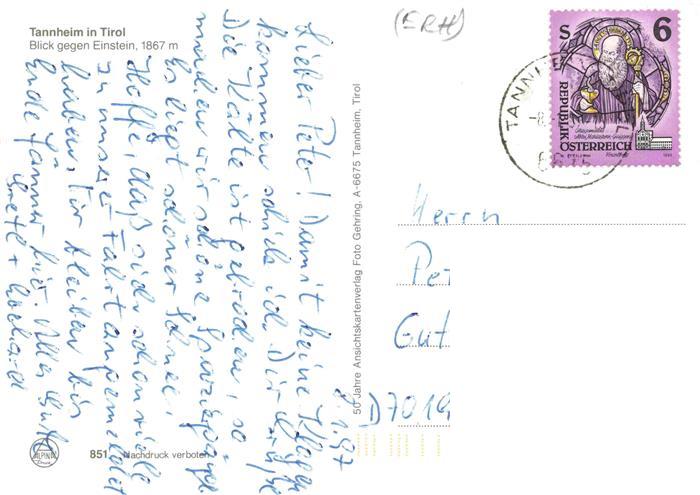 Tannheim in Tirol
Blick gegen Einstein, 1867 m
8.1.97
Lieber Peter! Damit keine Klagen
kommen schick ich Dir Grüße
Die Kälte ist gebrochen, so
machen wir schöne Spaziergänge
Es liegt schöner Schnee.
Hoffe, daß sich schon viele
zu unserer Fahrt angemeldet
haben. Wir bleiben bis
Ende Jänner hier. Alles Gute
851
Nachdruck verboten
ALPINA
50 Jahre Ansichtskartenverlag Foto Gehring, A-6675 Tannheim, Tirol
(ERH)
S 6
REPUBLIK
ÖSTERREICH
TANNHE
-8.
6675
Herrn
Pet
Gut
D7019